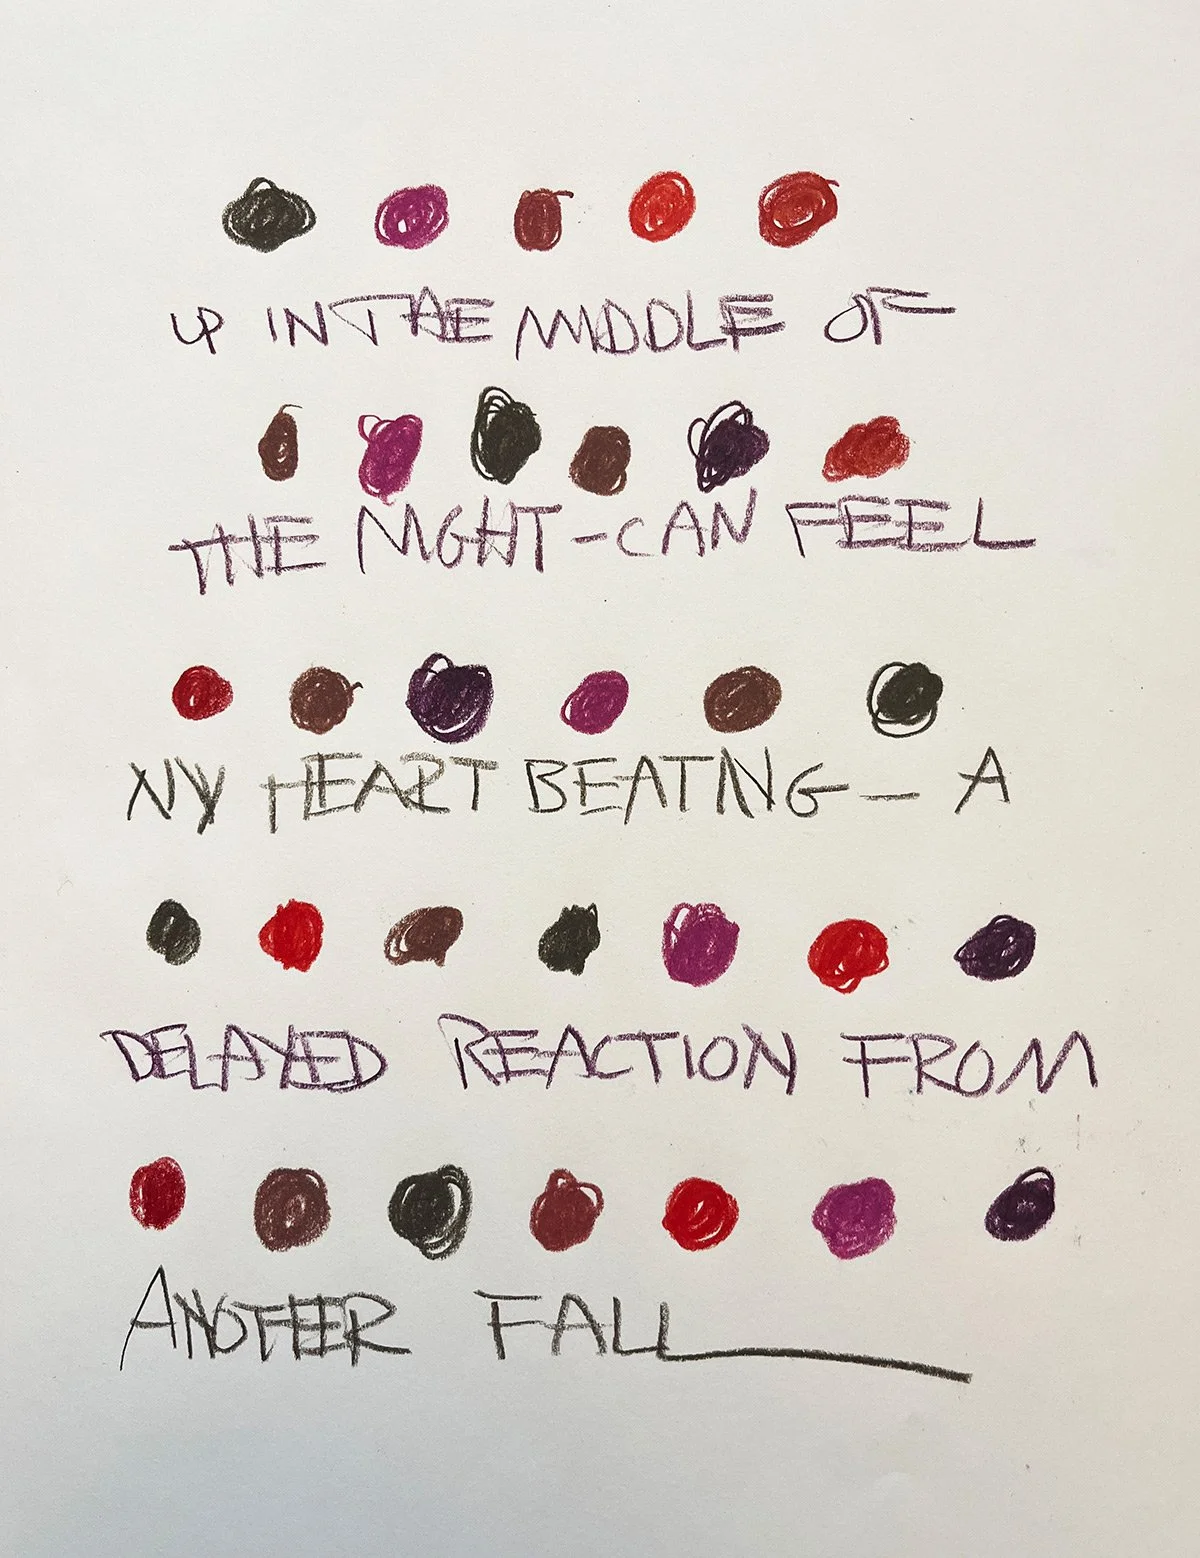 UP IN THE MIDDLE OF
THE NIGHT - CAN FEEL
MY HEART BEATING — A
DELAYED REACTION FROM
ANOTHER FALL